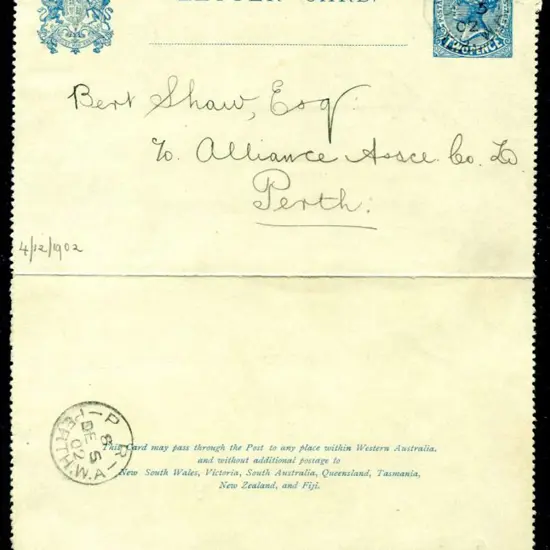 LETTER CARD.
TWOPENCE
5
02
Bert Shaw, Esq.
c/o. Alliance Assce. Co. Ld
Perth.
4/12/1902
This Card may pass through the Post to any place within Western Australia,
and without additional postage to
New South Wales, Victoria, South Australia, Queensland, Tasmania,
New Zealand, and Fiji.
R
8
DE 5
02
PERTH. W.A